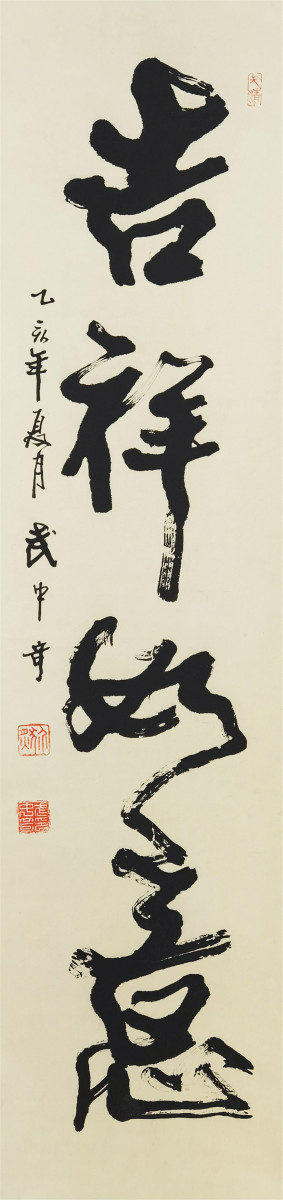 吉祥如意
乙亥年夏月 武中奇